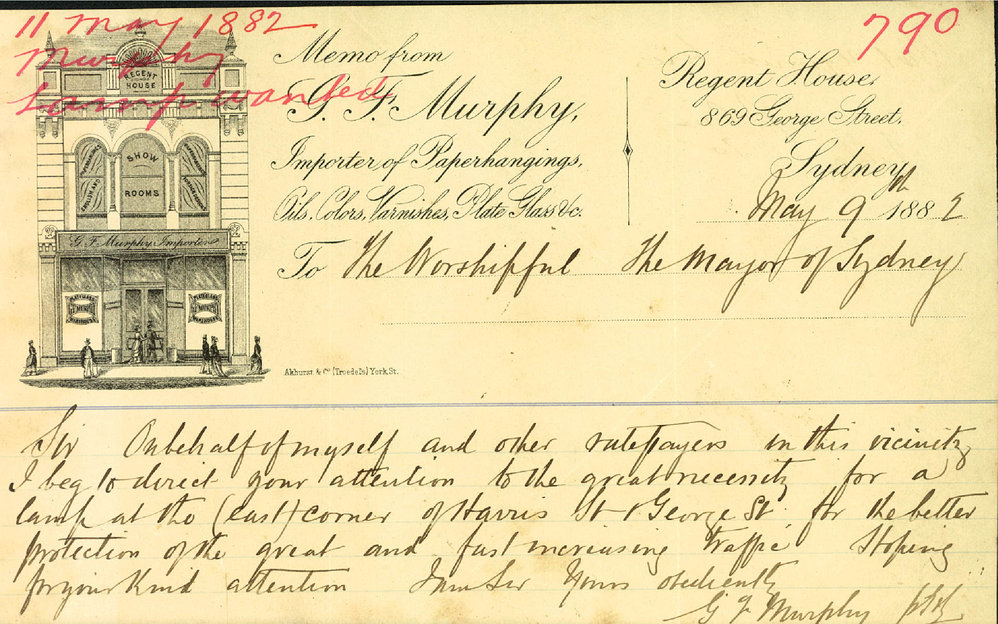 11 May 1882
Murphy
Lamp wanted
790
REGENT
HOUSE
SHOW
ROOMS
G. F. Murphy Importer
Memo from
G. F. Murphy,
Importer of Paperhangings,
Oils, Colors, Varnishes, Plate Glass &c.
Regent House,
869 George Street,
Sydney
May 9th 1882
To The Worshipful The Mayor of Sydney
Akhurst & Co (Troedels) York St.
Sir On behalf of myself and other ratepayers in this vicinity
I beg to direct your attention to the great necessity for a
lamp at the (east) corner of Harris St & George St for the better
protection of the great and fast increasing traffic Hoping
for your kind attention I am Sir Yours obediently
G F Murphy